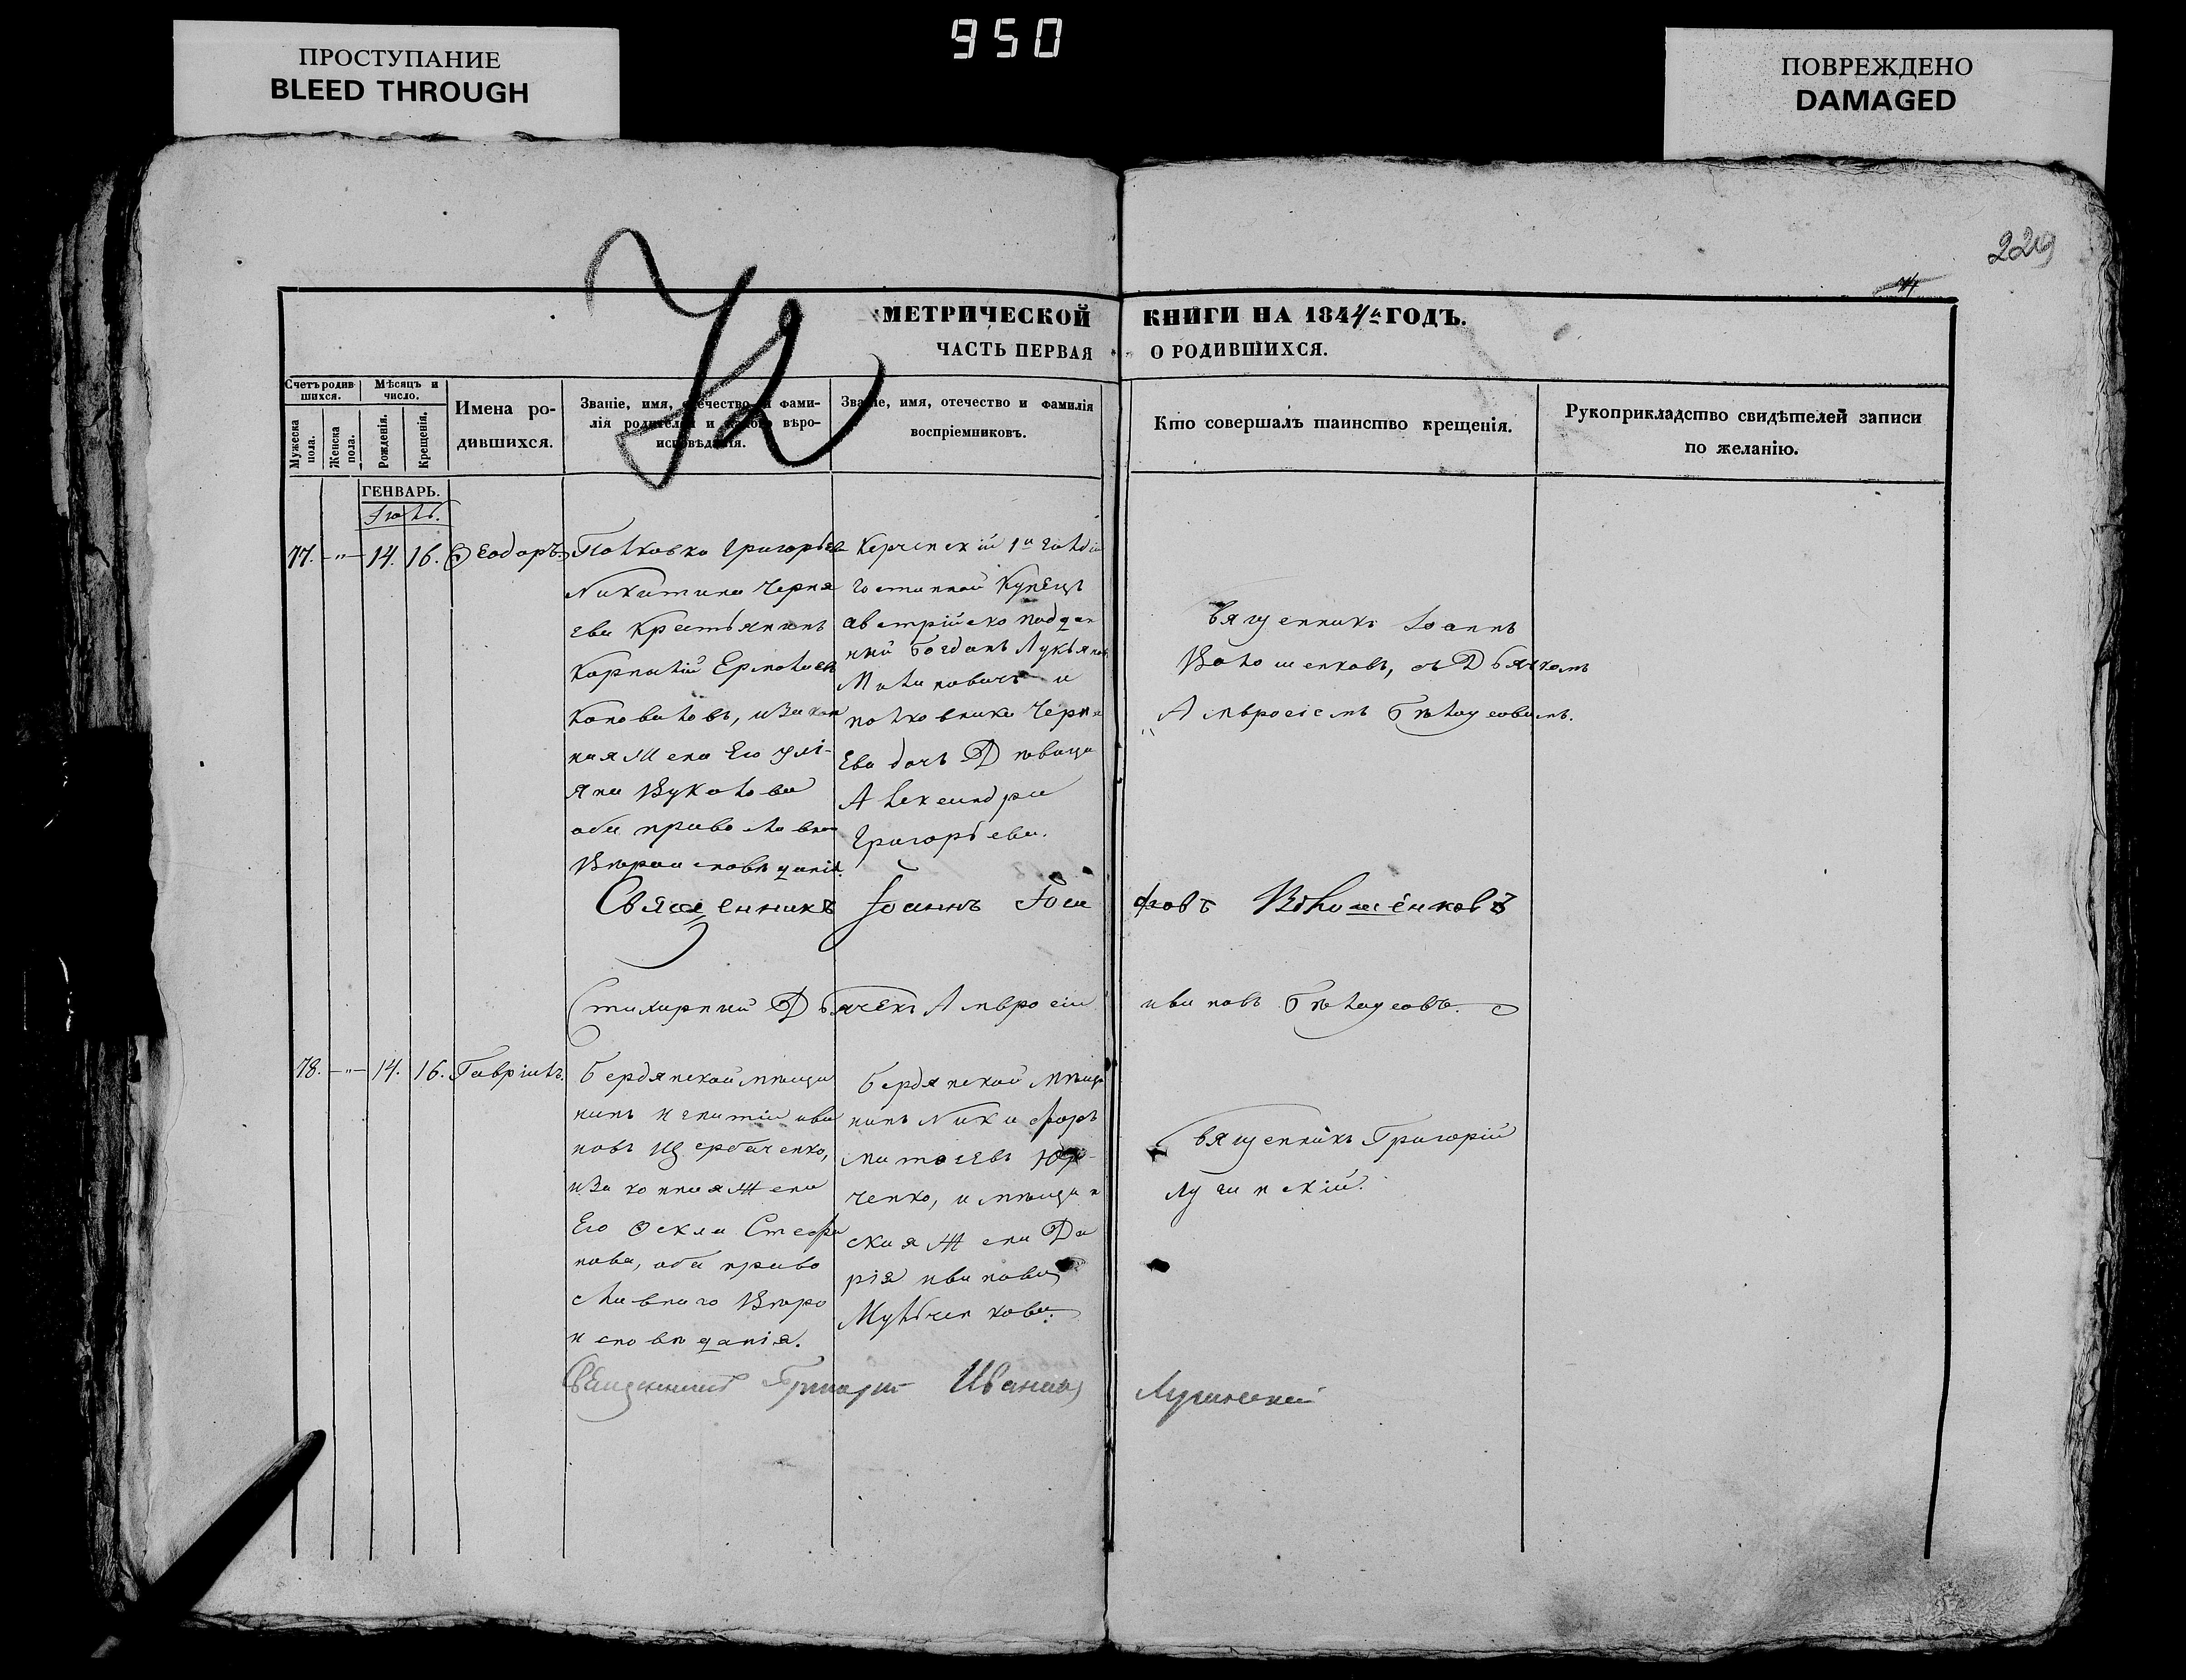 950
ПРОСТУПАНИЕ
BLEED THROUGH
ПОВРЕЖДЕНО
DAMAGED
229
МЕТРИЧЕСКОЙ КНИГИ НА 1844й ГОДЪ.
ЧАСТЬ ПЕРВАЯ О РОДИВШИХСЯ.
Счетъ родив-
шихся.
Мужеска
пола.
Женска
пола.
Мѣсяцъ и
число.
Рожденія.
Крещенія.
Имена ро-
дившихся.
Званіе, имя, отечество и фами-
лія родителей и какого вѣро-
исповѣданія.
Званіе, имя, отечество и фамилія
воспріемниковъ.
Кто совершалъ таинство крещенія.
Рукоприкладство свидѣтелей записи
по желанію.
ГЕНВАРЬ.
77. -"- 14. 16. Ѳеодоръ
Григорьева
Никитина Черня
ева Крестьянинъ
Коновановъ, и закон
ная Жена Его Улі-
яна Вукалова
оба православнаго
Вѣроисповѣданія.
Керченскій 1й гильдіи
Гостинной Купецъ
Австрійско поддан
ный Богданъ Лукьянов
и
полковника Черня
Ева дочь Дѣвица
Александра
Григорьева.
Священникъ Іоаннъ
Волошенковъ, съ Дьячкомъ
Амвросіемъ Бѣлаусовымъ.
Священникъ Іоаннъ Іоси фовъ Волошенковъ
Стихирный Дьячекъ Амвросій Ивановъ Бѣлаусовъ.
78. -"- 14. 16. Гавріилъ.
Бердянской мѣща
нинъ Игнатій Ива
новъ Щербаченко,
и законная Жена
Его Ѳекла Стефа
нова, оба право
славнаго Вѣро
исповѣданія.
Бердянской мѣща
нинъ Никифоръ
Юр-
ченко, и мѣщан
ская Жена Да
рія Иванова
Мульченкова.
Священникъ Григорій
Лучинскій.
Священникъ Григорій Ивановъ Лучинскій